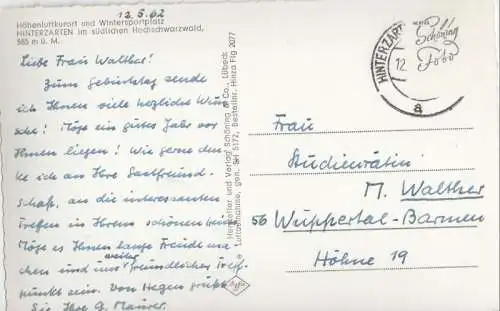 12.5.62
Höhenluftkurort und Wintersportplatz
HINTERZARTEN im südlichen Hochschwarzwald,
885 m ü. M.
Liebe Frau Walther!
Zum Geburtstag sende
ich Ihnen viele herzliche Wün
sche! Möge ein gutes Jahr vor
Ihnen liegen! Wie gerne den-
ke ich an Ihre Gastfreund-
schaft, an die interessanten
Treffen in Ihrem schönen Heim.
Möge es Ihnen lange Freude ma-
chen und uns weiter freundlicher Treff-
punkt sein. Von Hegen grüßt
Sie Ihre G. Maurer.
Hersteller und Verlag: Schöning & Co., Lübeck
Luftaufnahme, gen. SH 5172, Bestellnr. Hinza Flg 2077
Agfa
HINTERZART
12.
a
Schöning
Foto
Frau
Studienrätin
M. Walther
56 Wuppertal-Barmen
Höhne 19